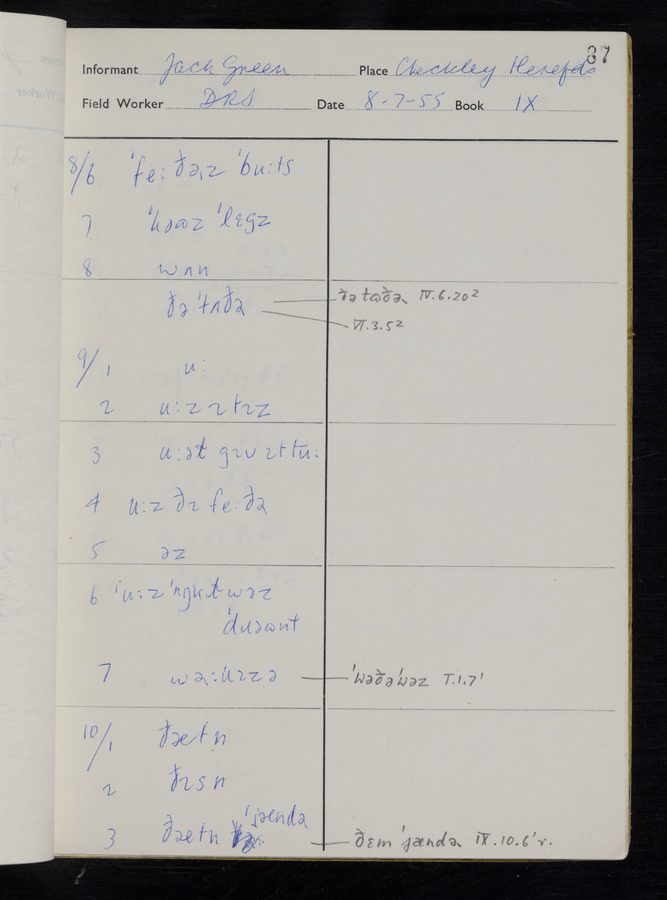 37
Informant Jack Green Place Checkley Herefds
Field Worker DRS Date 8-7-55 Book IX
8/6 ˈfeːðəɪz ˈbuːts
7 ˈ ˈlɛgz
8 wʌn
ðə ˈtʌðə ðə tɷðə IV.6.20²
VI.3.5²
9/1 uː
2 uːz ɪtɪz
3 uːət gɪv ɪt tuː
4 uːz ðɪ feːðə
5 əz
6 ˈuːz ˈʌŋkt wəz
7 ˈwəðəˈwəz V.1.7¹
10/1 ðætn
2 ðɪsn
3 ðætn ˈjændə ðɛm ˈjændə IX.10.6¹r.